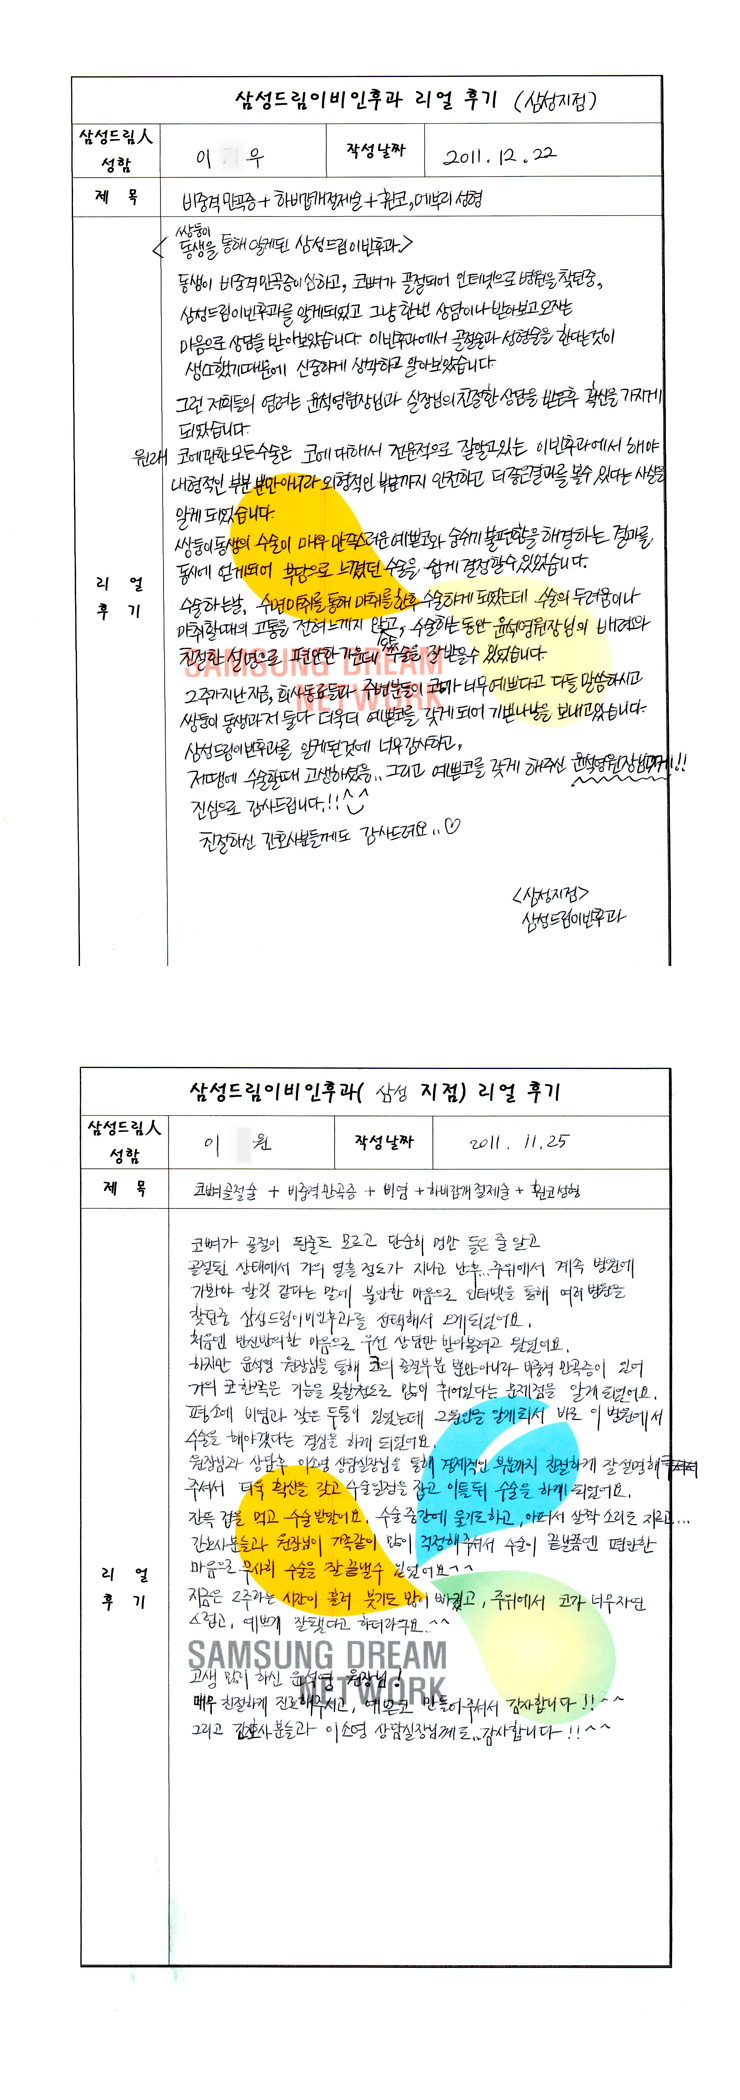 삼성드림이비인후과 리얼 후기 (삼성지점)
삼성드림人 성함
이 우
작성날짜
2011.12.22
제 목
비중격만곡증+하비갑개절제술+휜코,매부리성형
쌍둥이
<동생을 통해 알게된 삼성드림이빈후과>
동생이 비중격만곡증이 심하고, 코뼈가 골절되어 인터넷으로 병원을 찾던중,
삼성드림이빈후과를 알게되었고 그냥 한번 상담이나 받아보고 오자는
마음으로 상담을 받아보았습니다. 이빈후과에서 골절술과 성형술을 한다는것이
생소했기때문에 신중하게 생각하고 알아보았습니다.
그런 저희들의 염려는 윤석영원장님과 실장님의 친절한 상담을 받은후 확신을 가지게
되었습니다.
원래 코에관한 모든수술은 코에 대해서 전문적으로 잘알고있는 이빈후과에서 해야
내형적인 부분 뿐만아니라 외형적인 부분까지 안전하고 더 좋은결과를 볼수 있다는 사실을
알게 되었습니다.
쌍둥이동생의 수술이 매우 만족스러운 예쁜코와 숨쉬기 불편함을 해결하는 결과를
동시에 얻게되어 부담으로 느꼈던 수술을 쉽게 결정할수있었습니다.
수술하는날, 수면마취를 통해 마취를한후 수술하게 되었는데 수술의 두려움이나
마취할때의 고통을 전혀 느끼지 않고, 수술하는 동안 윤석영원장님의 배려와
친절한 설명으로 편안한 가운데 수술을 잘 받을수 있었습니다.
2주가지난 지금, 회사동료들과 주변분들이 코가 너무예쁘다고 다들 말씀하시고
쌍둥이 동생과 저 둘다 더욱더 예쁜코를 갖게 되어 기쁜나날을 보내고있습니다.
삼성드림이빈후과를 알게된것에 너무감사하고,
저땜에 수술할때 고생하셨을.. 그리고 예쁜코를 갖게 해주신 윤석영원장님께!!
진심으로 감사드립니다.!! ^^
친절하신 간호사분들께도 감사드려요..♡
<삼성지점>
삼성드림이빈후과
리 얼
후 기
SAMSUNG DREAM
NETWORK
삼성드림이비인후과( 삼성 지점) 리얼 후기
삼성드림人 성함
이 원
작성날짜
2011. 11.25
제 목
코뼈골절술 + 비중격만곡증 + 비염 +하비갑개절제술 + 휜코성형
코뼈가 골절이 된줄도 모르고 단순히 멍만 들은 줄 알고
골절된 상태에서 거의 열흘 정도가 지나고 난후.. 주위에서 계속 병원에
가봐야 할것 같다는 말에 불안한 마음으로 인터넷을 통해 여러 병원을
찾던중 삼성드림이비인후과를 선택해서 오게되었어요.
처음엔 반신반의한 마음으로 우선 상담만 받아볼려고 왔었어요.
하지만 윤석영 원장님을 통해 코의 골절부분 뿐만아니라 비중격 만곡증이 있어
거의 코 한쪽은 기능을 못할정도로 많이 휘어있다는 문제점을 알게 되었어요.
평소에 비염과 잦은 두통이 있었는데 그원인을 알게되서 바로 이 병원에서
수술을 해야겠다는 결심을 하게 되었어요.
원장님과 상담후 이소영 상담실장님을 통해 경제적인 부분까지 친절하게 잘설명해
주셔서 더욱 확신을 갖고 수술일정을 잡고 이틀뒤 수술을 하게 되었어요.
잔뜩 겁을 먹고 수술받았어요. 수술중간에 울기도하고, 아파서 살짝 소리도 지르고...
간호사분들과 원장님이 가족같이 많이 걱정해주셔서 수술이 끝날쯤엔 편안한
마음으로 무사히 수술을 잘 끝낼수 있었어요^^
지금은 2주라는 시간이 흘러 붓기도 많이 빠졌고, 주위에서 코가 너무자연
스럽고, 예쁘게 잘됐다고 하더라구요..^^
고생 많이 하신 윤석영 원장님!
매우 친절하게 진료해주시고, 예쁜코 만들어주셔서 감사합니다!!^^
그리고 간호사분들과 이소영 상담실장님께도..감사합니다!!^^
리 얼
후 기
SAMSUNG DREAM
NETWORK